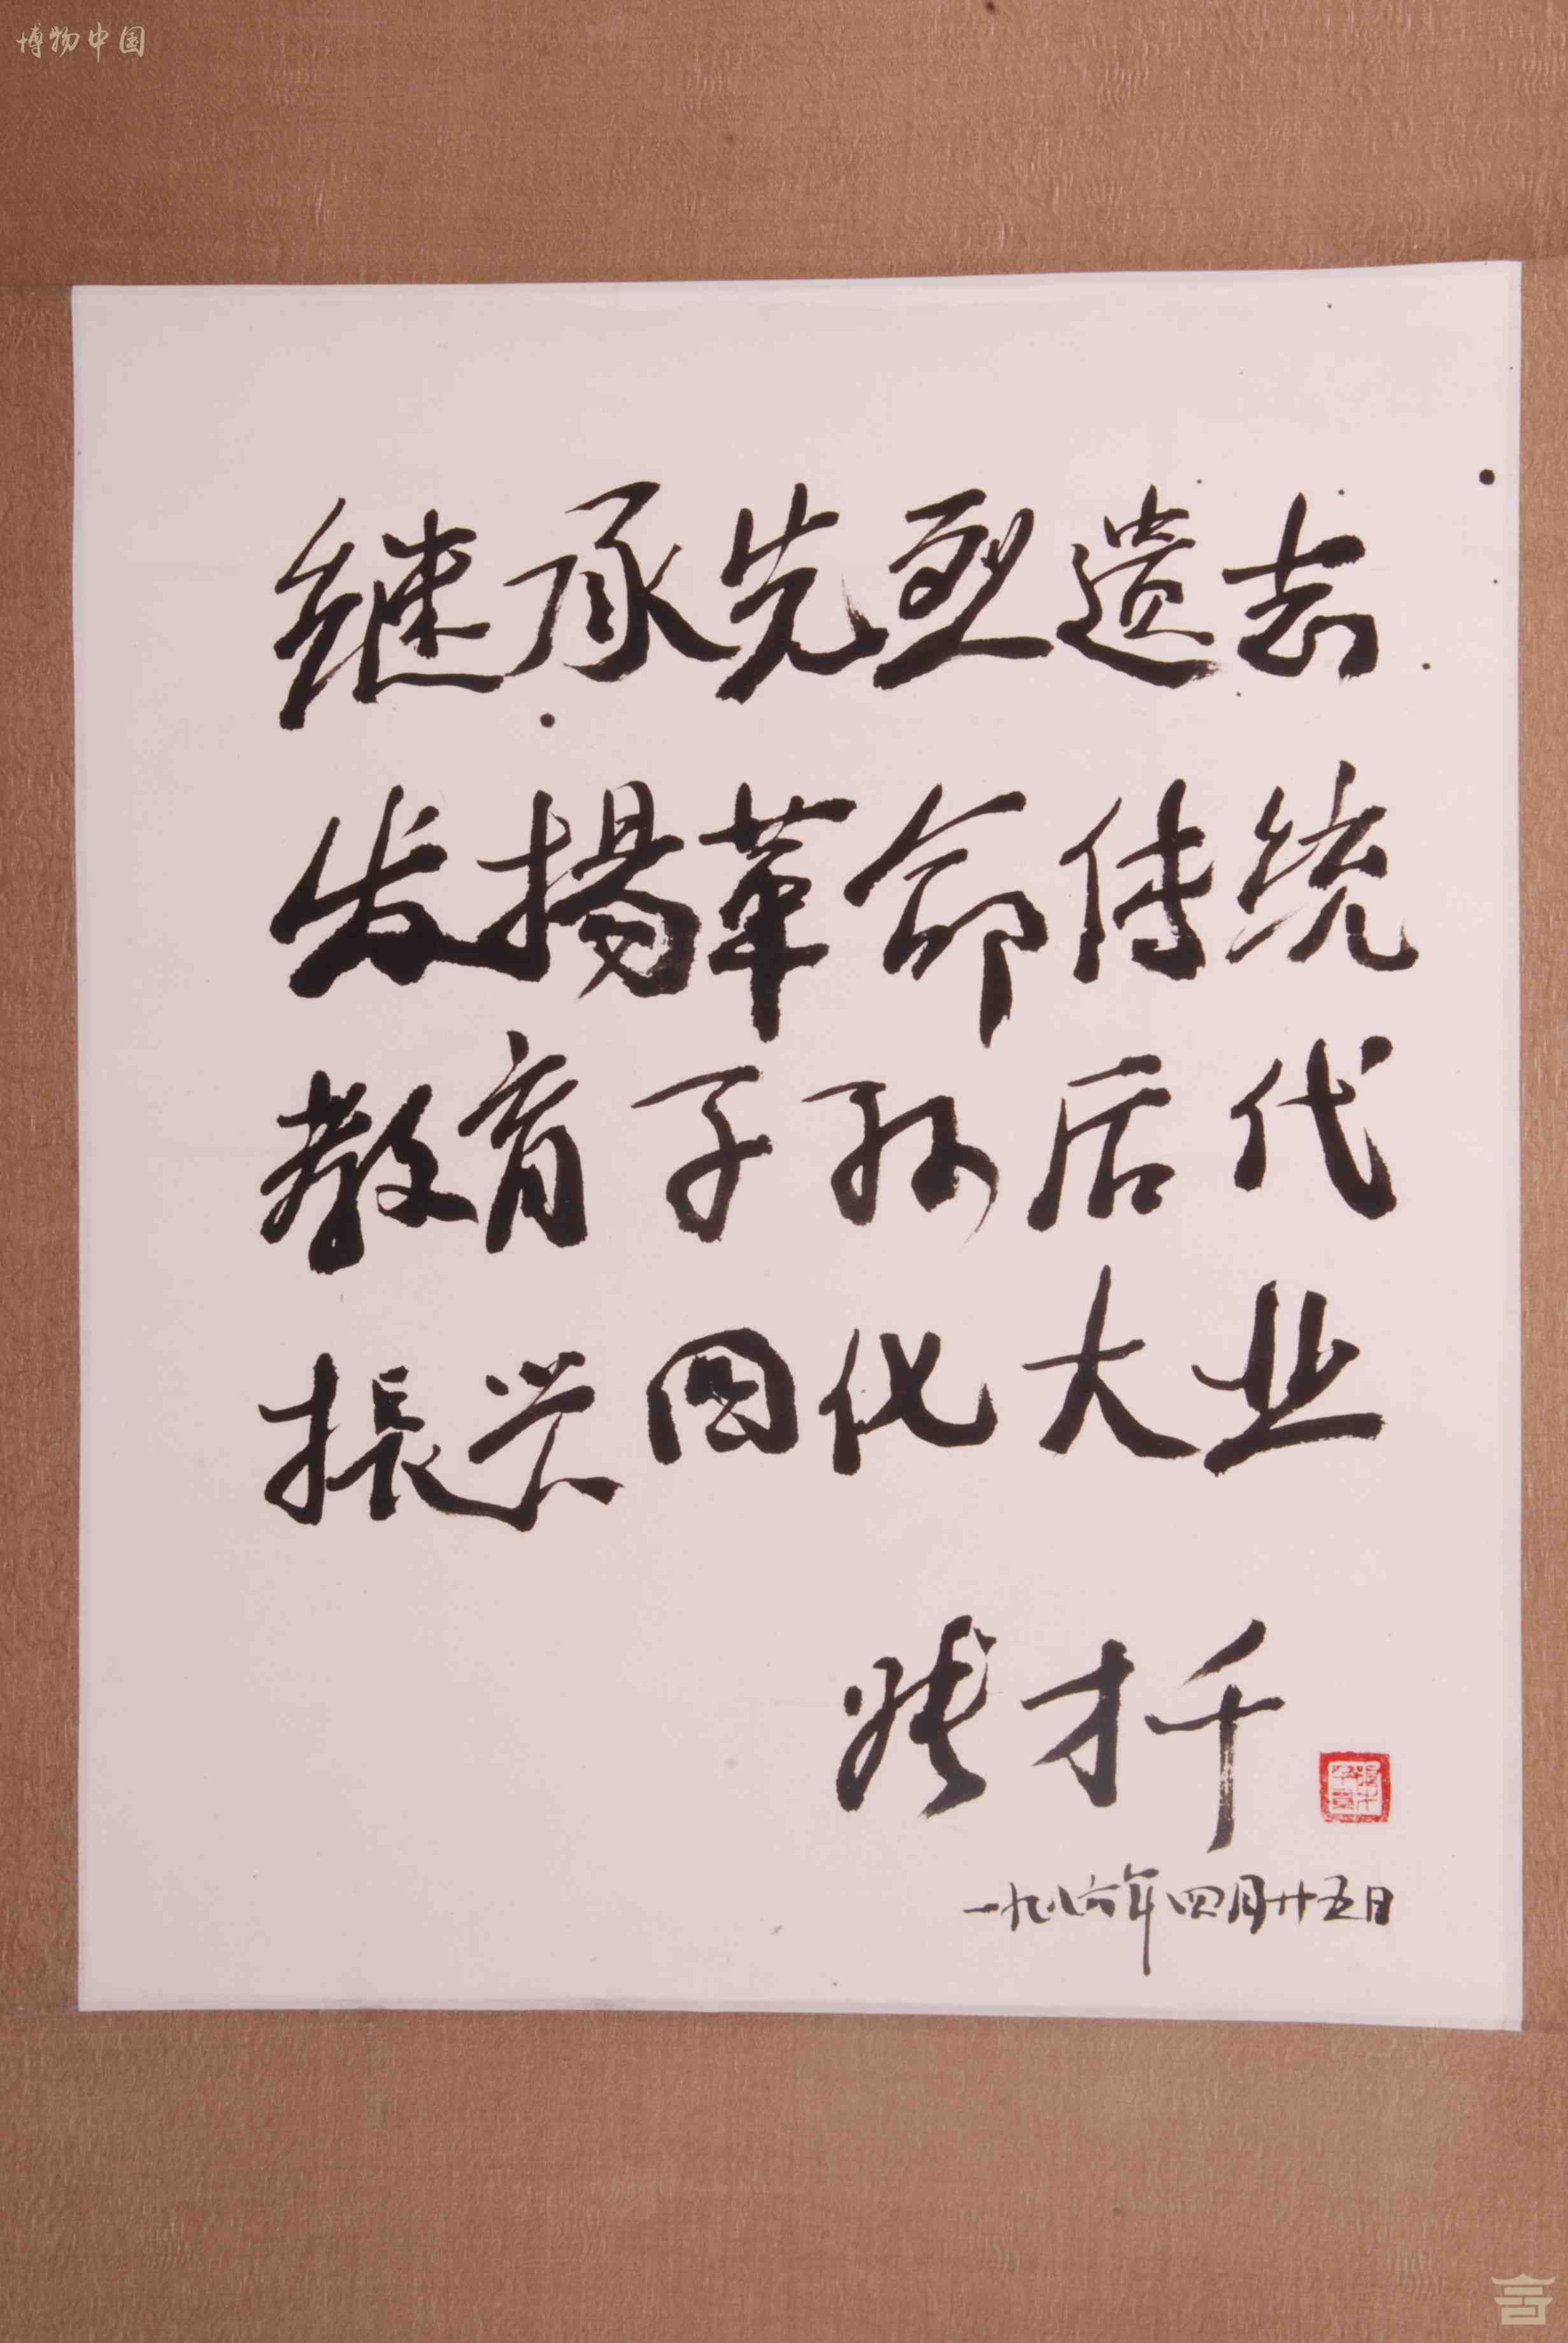 博物中国
继承先烈遗志
发扬革命传统
教育子孙后代
振兴四化大业
张才千
一九八六年四月廿五日